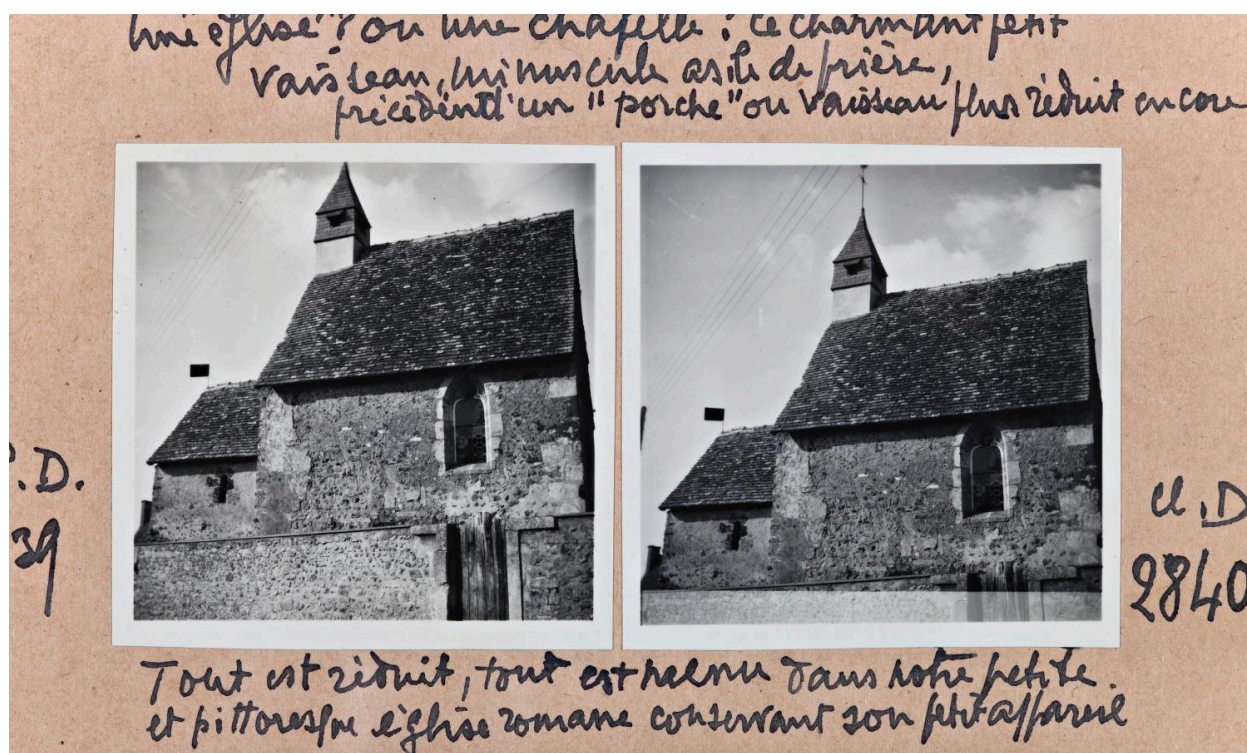 une église ? ou une chapelle ? ce charmant petit
vaisseau, minuscule asile de prière,
précédé d'un "porche" ou vaisseau plus réduit encore
P.D.
39
cl. D
2840
Tout est réduit, tout est menu dans notre petite
et pittoresque église romane conservant son petit appareil